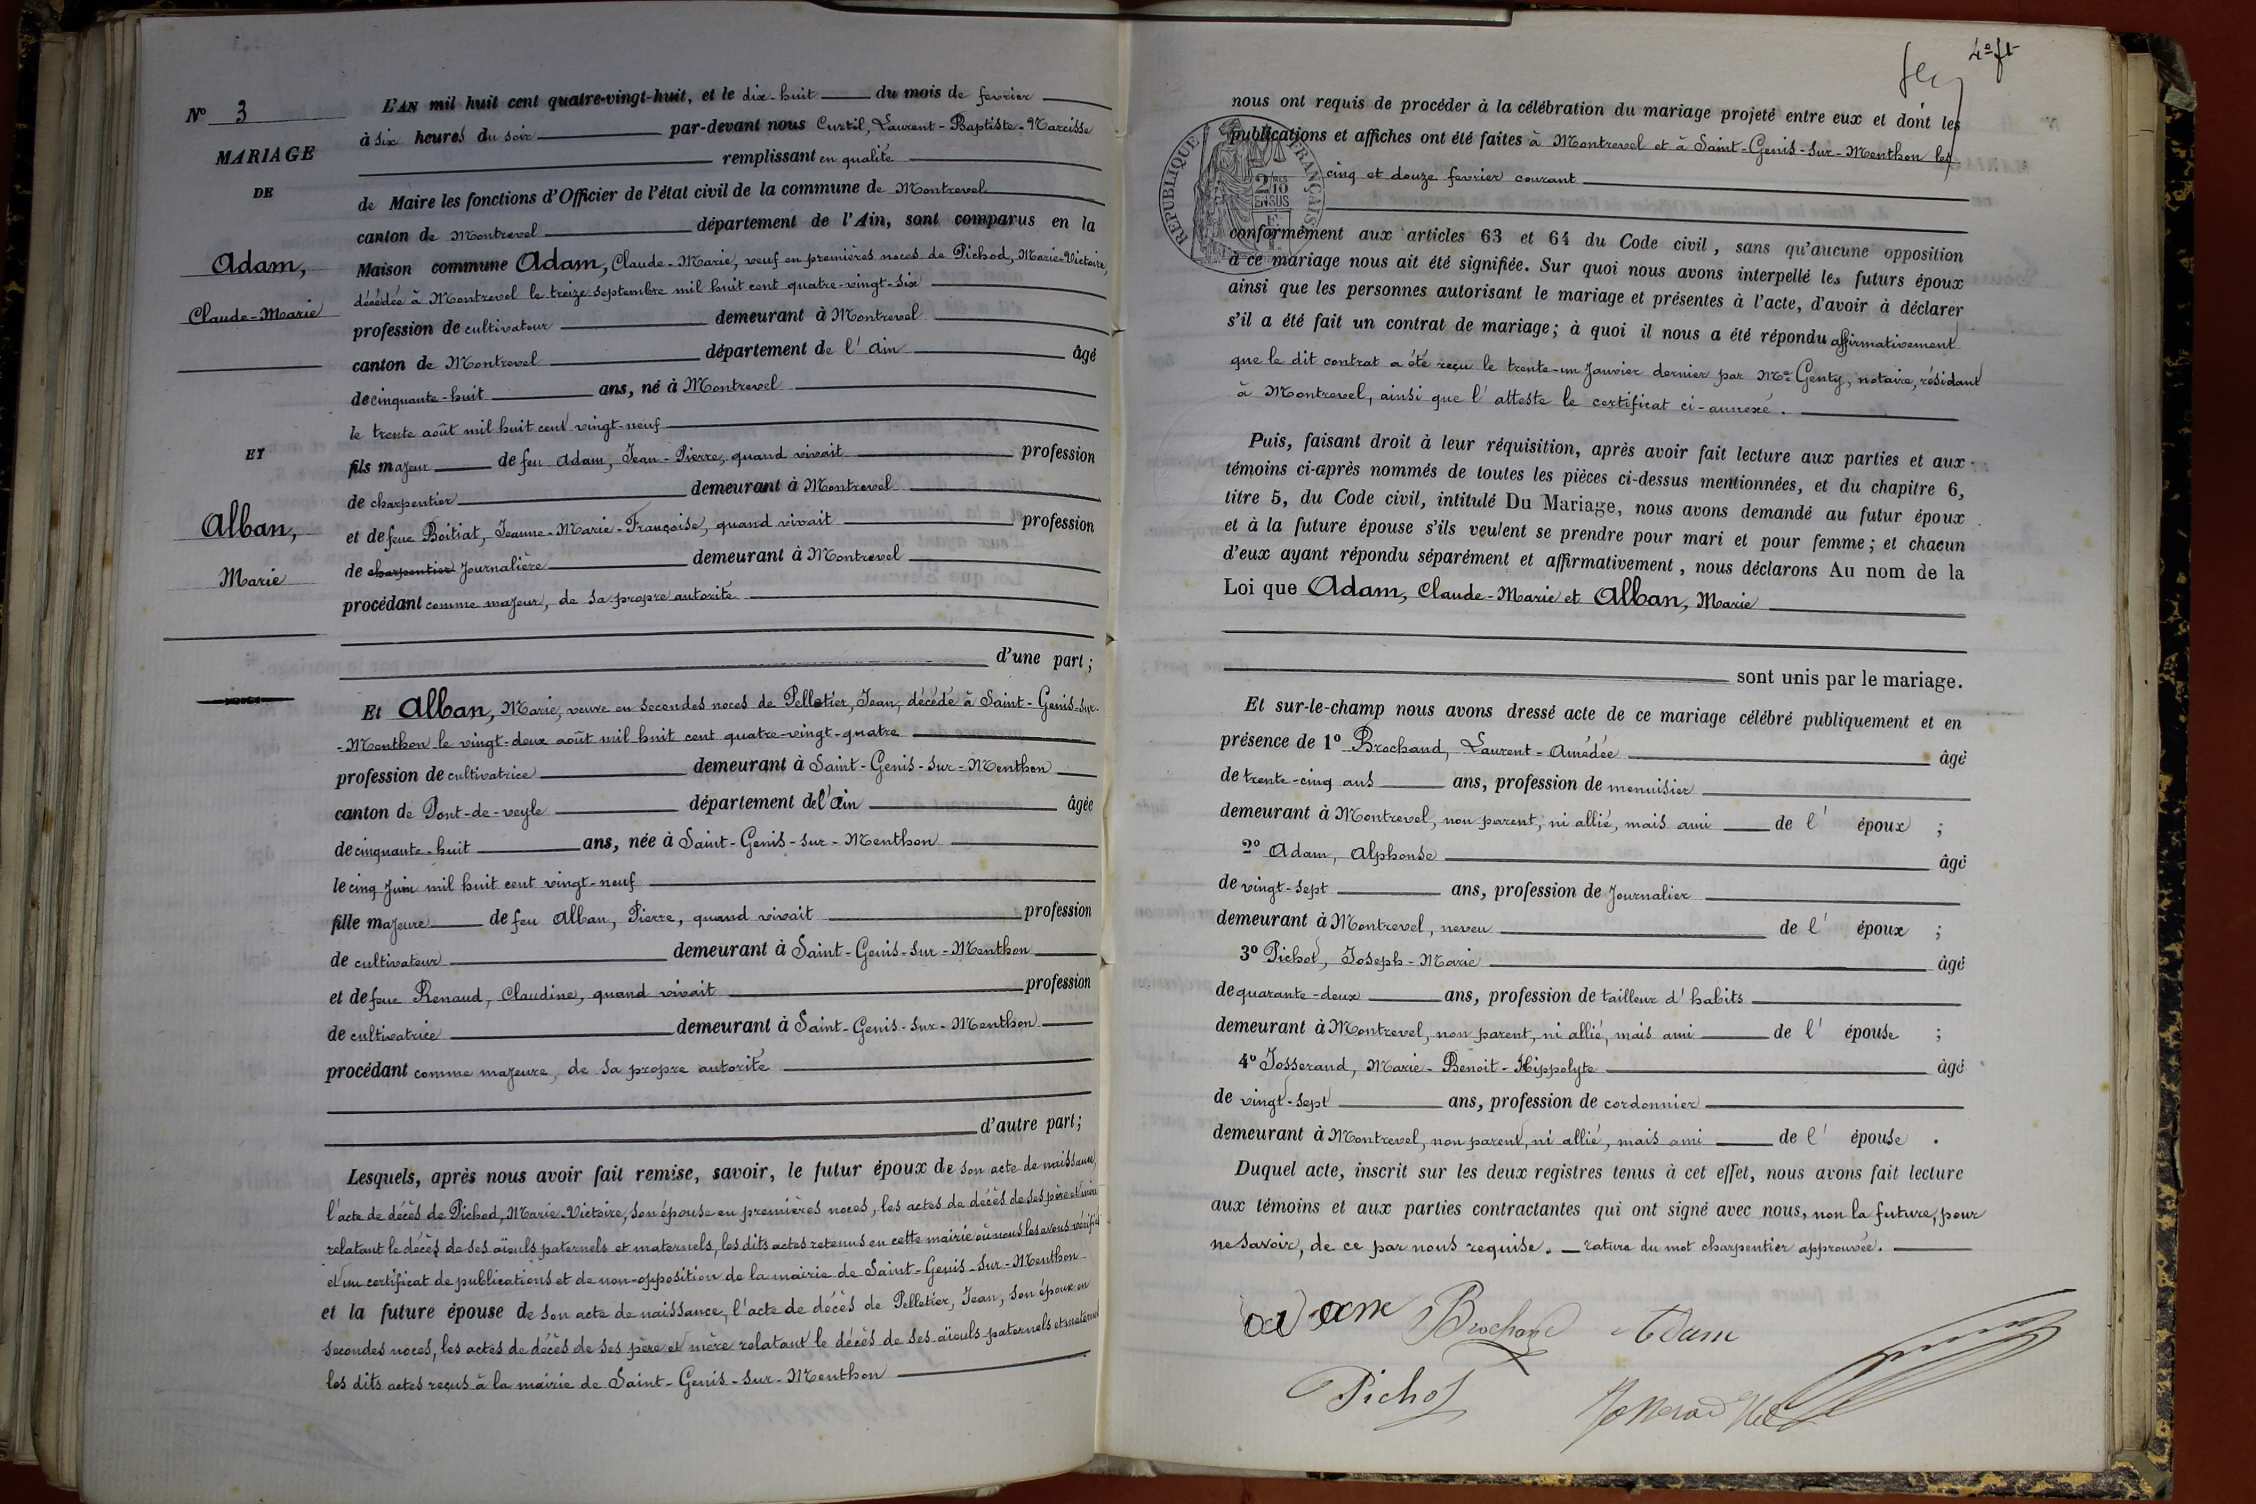 Nº 3
MARIAGE
DE
Adam,
Claude-Marie
ET
Alban,
Marie
L'AN mil huit cent quatre-vingt-huit, et le dix-huit du mois de fevrier
à six heures du soir par-devant nous Curtil, Laurent-Baptiste-Narcisse
remplissant en qualité
de Maire les fonctions d'Officier de l'état civil de la commune de Montrevel
canton de Montrevel département de l'Ain, sont comparus en la
Maison commune Adam, Claude-Marie, veuf en premières noces de Pichod, Marie-Victoire,
décédée à Montrevel le treize septembre mil huit cent quatre-vingt-six
profession de cultivateur demeurant à Montrevel
canton de Montrevel département de l'Ain âgé
de cinquante-huit ans, né à Montrevel
le trente août mil huit cent vingt-neuf
fils majeur de feu Adam, Jean-Pierre, quand vivait profession
de charpentier demeurant à Montrevel
et de feue Boitiat, Jeanne-Marie-Françoise, quand vivait profession
de charpentier journalière demeurant à Montrevel
procédant comme majeur, de sa propre autorité
d'une part;
Et Alban, Marie, veuve en secondes noces de Pelletier, Jean, décédé à Saint-Genis-sur-
-Menthon le vingt-deux août mil huit cent quatre-vingt-quatre
profession de cultivatrice demeurant à Saint-Genis-sur-Menthon
canton de Pont-de-veyle département de l'Ain âgée
de cinquante-huit ans, née à Saint-Genis-sur-Menthon
le cinq Juin mil huit cent vingt-neuf
fille majeure de feu Alban, Pierre, quand vivait profession
de cultivateur demeurant à Saint-Genis-sur-Menthon
et de feue Renaud, Claudine, quand vivait profession
de cultivatrice demeurant à Saint-Genis-sur-Menthon
procédant comme majeure, de sa propre autorité
d'autre part;
Lesquels, après nous avoir fait remise, savoir, le futur époux de son acte de naissance,
l'acte de décès de Pichod, Marie-Victoire, son épouse en premières noces, les actes de décès de ses père et mère
relatant le décès de ses aïeuls paternels et maternels, les dits actes retenus en cette mairie où nous les avons vérifiés
et un certificat de publications et de non-opposition de la mairie de Saint-Genis-sur-Menthon
et la future épouse de son acte de naissance, l'acte de décès de Pelletier, Jean, son époux en
secondes noces, les actes de décès de ses père et mère relatant le décès de ses aïeuls paternels et maternels
les dits actes reçus à la mairie de Saint-Genis-sur-Menthon
nous ont requis de procéder à la célébration du mariage projeté entre eux et dont les
publications et affiches ont été faites à Montrevel et à Saint-Genis-sur-Menthon les
cinq et douze fevrier courant
RÉPUBLIQUE FRANÇAISE
2/10 EN SUS
conformément aux articles 63 et 64 du Code civil, sans qu'aucune opposition
à ce mariage nous ait été signifiée. Sur quoi nous avons interpellé les futurs époux
ainsi que les personnes autorisant le mariage et présentes à l'acte, d'avoir à déclarer
s'il a été fait un contrat de mariage; à quoi il nous a été répondu affirmativement
que le dit contrat a été reçu le trente-un Janvier dernier par Me Genty, notaire, résidant
à Montrevel, ainsi que l'atteste le certificat ci-annexé.
Puis, faisant droit à leur réquisition, après avoir fait lecture aux parties et aux
témoins ci-après nommés de toutes les pièces ci-dessus mentionnées, et du chapitre 6,
titre 5, du Code civil, intitulé Du Mariage, nous avons demandé au futur époux
et à la future épouse s'ils veulent se prendre pour mari et pour femme; et chacun
d'eux ayant répondu séparément et affirmativement, nous déclarons Au nom de la
Loi que Adam, Claude-Marie et Alban, Marie
sont unis par le mariage.
Et sur-le-champ nous avons dressé acte de ce mariage célébré publiquement et en
présence de 1º Brochand, Laurent-Amédée âgé
de trente-cinq ans ans, profession de menuisier
demeurant à Montrevel, non parent, ni allié, mais ami de l'époux ;
2º Adam, Alphonse âgé
de vingt-sept ans, profession de Journalier
demeurant à Montrevel, neveu de l'époux ;
3º Pichot, Joseph-Marie âgé
de quarante-deux ans, profession de tailleur d'habits
demeurant à Montrevel, non parent, ni allié, mais ami de l'épouse ;
4º Josserand, Marie-Benoit-Hippolyte âgé
de vingt-sept ans, profession de cordonnier
demeurant à Montrevel, non parent, ni allié, mais ami de l'épouse .
Duquel acte, inscrit sur les deux registres tenus à cet effet, nous avons fait lecture
aux témoins et aux parties contractantes qui ont signé avec nous, non la future, pour
ne savoir, de ce par nous requise. — rature du mot charpentier approuvée.
adam Brochand Adam
Pichot